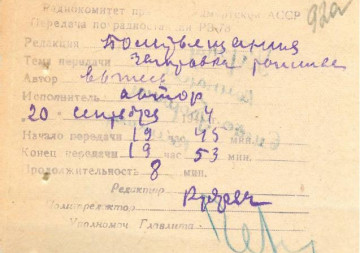 Радиокомитет пр АССР
92а
Передача по радиостанции РВ
Редакция Политвещания
Тема передачи
Автор
Исполнитель автор
20 сентября 4
Начало передачи 19 час 45 мин.
Конец передачи 19 час 53 мин.
Продолжительность 8 мин.
Редактор
Политредактор
Уполномоч Главлита